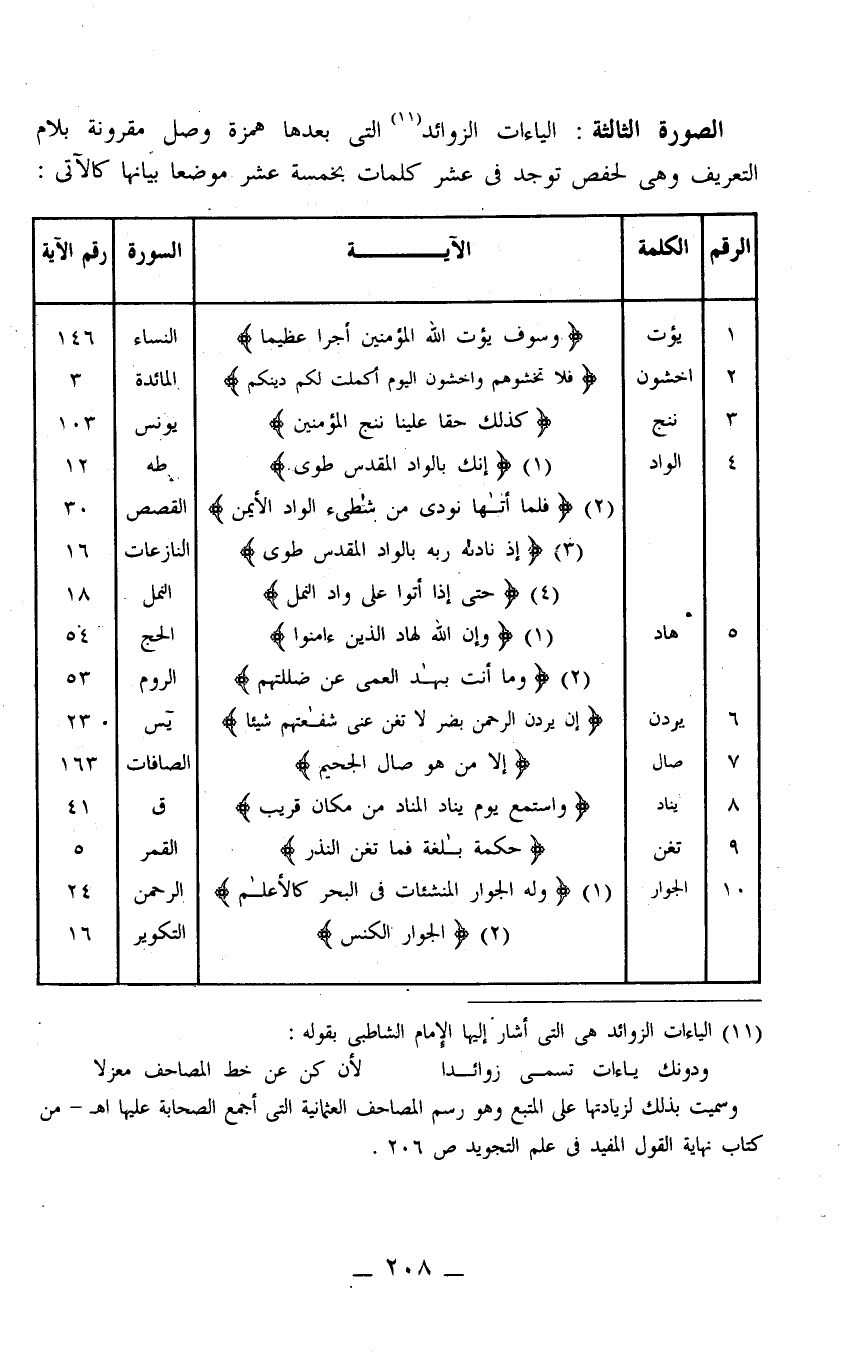 الصورة الثالثة : الياءات الزوائد(١١) التى بعدها همزة وصل مقرونة بلام
التعريف وهى لحفص توجد فى عشر كلمات بخمسة عشر موضعا بيانها كالآتى :
الرقم الكلمة الآيـــــــة السورة رقم الآية
١ يؤت ﴿ وسوف يؤت الله المؤمنين أجرا عظيما ﴾ النساء ١٤٦
٢ اخشون ﴿ فلا تخشوهم واخشون اليوم أكملت لكم دينكم ﴾ المائدة ٣
٣ ننج ﴿ كذلك حقا علينا ننج المؤمنين ﴾ يونس ١٠٣
٤ الواد (١) ﴿ إنك بالواد المقدس طوى ﴾ طه ١٢
(٢) ﴿ فلما أتـٰها نودى من شٰطىء الواد الأيمن ﴾ القصص ٣٠
(٣) ﴿ إذ نادىٰه ربه بالواد المقدس طوى ﴾ النازعات ١٦
(٤) ﴿ حتى إذا أتوا على واد النمل ﴾ النمل ١٨
٥ هاد (١) ﴿ وإن الله لهاد الذين ءامنوا ﴾ الحج ٥٤
(٢) ﴿ وما أنت بهـٰد العمى عن ضللتهم ﴾ الروم ٥٣
٦ يردن ﴿ إن يردن الرحمن بضر لا تغن عنى شفـٰعتهم شيئا ﴾ يٓس ٢٣
٧ صال ﴿ إلا من هو صال الجحيم ﴾ الصافات ١٦٣
٨ يناد ﴿ واستمع يوم يناد المناد من مكان قريب ﴾ ق ٤١
٩ تغن ﴿ حكمة بـٰلغة فما تغن النذر ﴾ القمر ٥
١٠ الجوار (١) ﴿ وله الجوار المنشئات فى البحر كالأعلـٰم ﴾ الرحمن ٢٤
(٢) ﴿ الجوار الكنس ﴾ التكوير ١٦
(١١) الياءات الزوائد هى التى أشار إليها الإمام الشاطبى بقوله :
ودونك يـاءات تسمـى زوائـــدا لأن كن عن خط المصاحف معزلا
وسميت بذلك لزيادتها على المتبع وهو رسم المصاحف العثمانية التى أجمع الصحابة عليها اهـ – من
كتاب نهاية القول المفيد فى علم التجويد ص ٢٠٦ .
ـ ٢٠٨ ـ